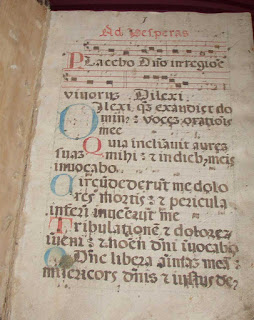 Ad Vesperas
Placebo Dño in regiōe
vivorum Dilexi.
Dilexi qm̄ exaudiet do
minꝰ: vocez oratiōis
mee
Quia inclinavit aurez
suaz mihi: & in diebꝰ meis
invocabo.
Circūdederūt me dolo
res mortis: & pericula
inferni invenerūt me
Tribulationē & dolorez
inveni: & nomen dn̄i invocabo
O Dñe libera aīmaz meā:
misericors dn̄s & iustus de,